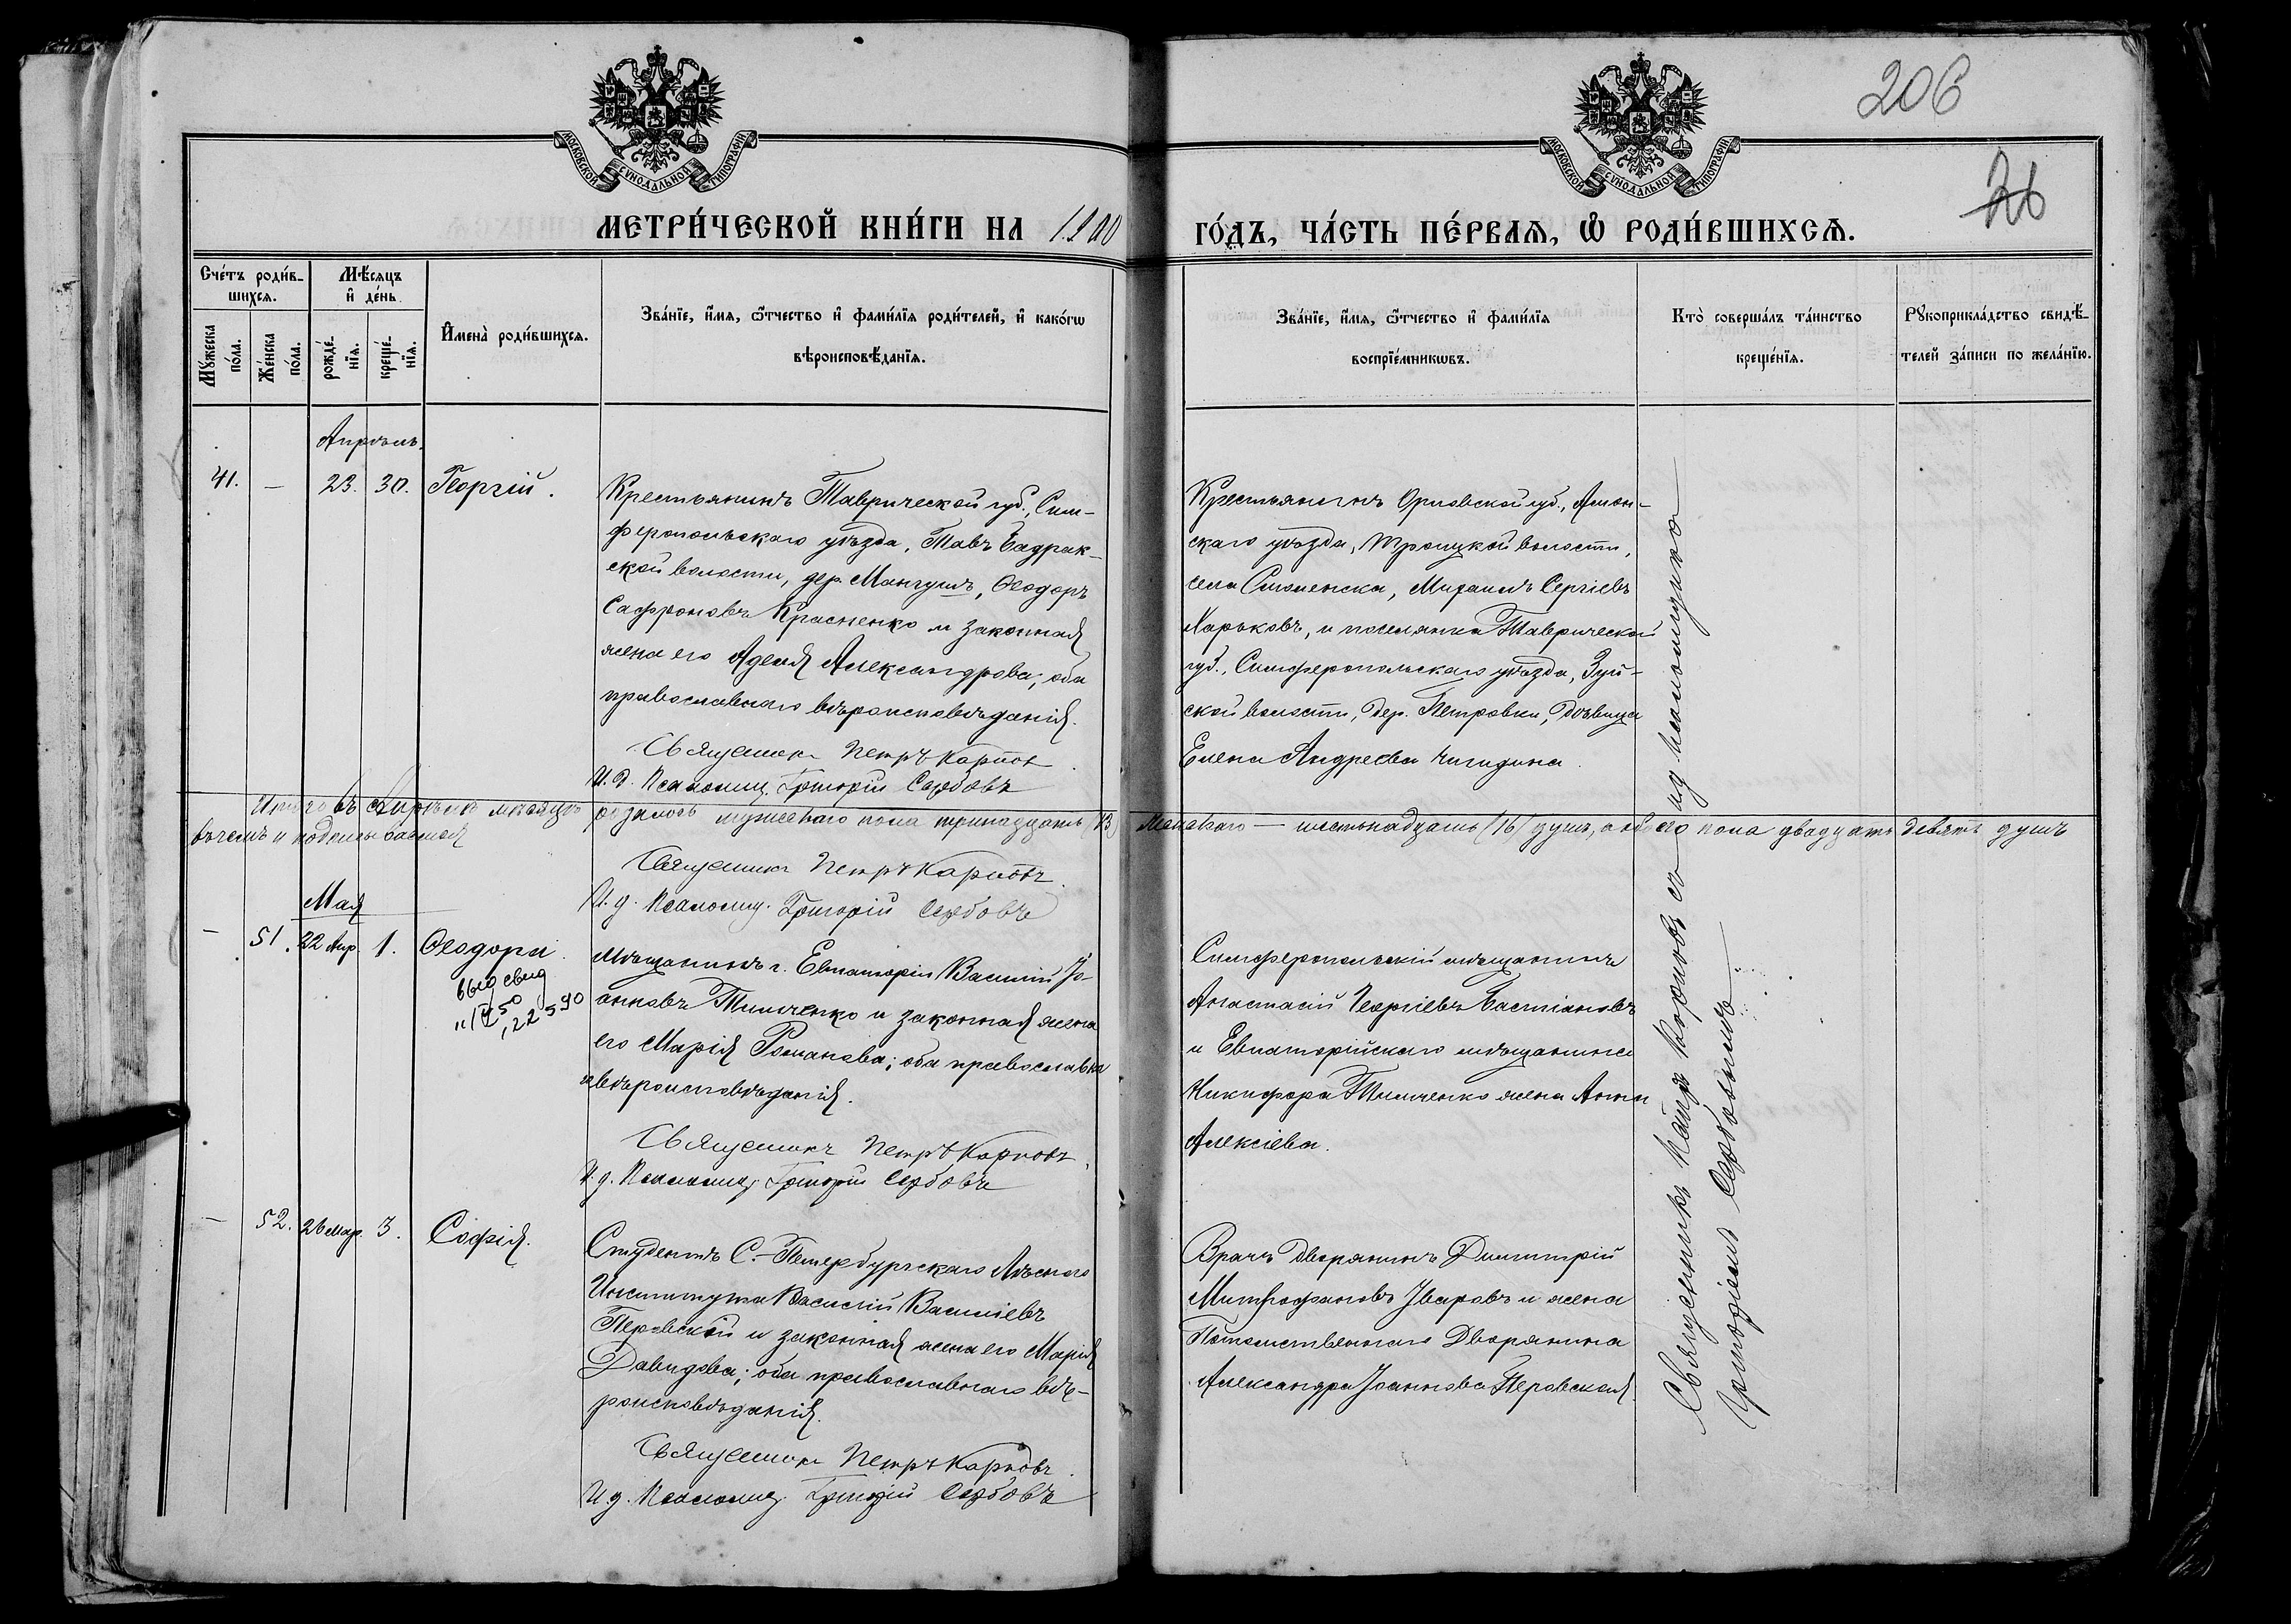 206
26
МОСКОВСКОЙ СѴНОДАЛЬНОЙ ТИПОГРАФІИ
МОСКОВСКОЙ СѴНОДАЛЬНОЙ ТИПОГРАФІИ
МЕТРИ́ЧЕСКОЙ КНИ́ГИ НА 1900 ГО́ДЪ, ЧА́СТЬ ПЕ́РВАЯ, Ѡ РОДИ́ВШИХСѦ.
Сче́тъ роди́в-
шихсѧ.
Мꙋжеска по́ла.
Же́нска по́ла.
Мѣ́сѧцъ
и҆ де́нь
рожде́-
нїѧ.
креще́-
нїѧ.
И҆мена̀ роди́вшихсѧ.
Зва́нїе, и҆́мѧ, ѻ҆́тчество и҆ фами́лїѧ роди́телей, и҆ како́гѡ
вѣроисповѣ́данїѧ.
Зва́нїе, и҆́мѧ, ѻ҆́тчество и҆ фами́лїѧ
воспрїе́мникѡвъ.
Кто̀ соверша́лъ та́инство
креще́нїѧ.
Рꙋкоприкла́дство свидѣ́-
телей за́писи по жела́нїю.
Апрѣль.
41. — 23. 30. Георгій.
Крестьянинъ Таврической губ., Сим-
феропольскаго уѣзда, Тавъ Бадрак-
ской волости, дер. Мангушъ, Ѳеодоръ
Сафроновъ Красненко и законная
жена его Аделія Александрова; оба
православнаго вѣроисповѣданія.
Священникъ Петръ Карповъ
И. д. Псаломщ. Григорій Сербовъ
Крестьянинъ Орловской губ.,
скаго уѣзда, Троицкой волости,
села Смоленска, Михаилъ Сергіевъ
Харьковъ, и поселянка Таврической
губ., Симферопольскаго уѣзда, Зуй-
ской волости, дер. Петровки, дѣвица
Елена Андреева Чигидина.
Итого въ Апрѣлѣ мѣсяцѣ родилось мужескаго пола тринадцать (13) Женскаго — шестьнадцать (16) душъ, а обоего пола двадцать девять душъ
въ чемъ и подписываемся
Священникъ Петръ Карповъ
И. д. Псаломщ. Григорій Сербовъ
Май
— 51. 22 Апр. 1. Ѳеодора.
выд свид
Мѣщанинъ г. Евпаторіи Василій Іо-
анновъ Тимченко и законная жена
его Марія Романова; оба православна
го вѣроисповѣданія.
Священникъ Петръ Карповъ
И. д. Псаломщ. Григорій Сербовъ
Симферопольскій мѣщанинъ
Анастасій Георгіевъ Бастіановъ
и Евпаторійскаго мѣщанина
Никифора Тимченко жена Анна
Алексіева.
— 52. 26 мар. 3. Софія.
Студентъ С.-Петербургскаго Лѣснаго
Института Василій Василіевъ
Перовскій и законная жена его Марія
Давидова; оба православнаго вѣ-
роисповѣданія.
Священникъ Петръ Карповъ
И. д. Псаломщ. Григорій Сербовъ
Врачъ Дворянинъ Димитрій
Митрофановъ Уваровъ и жена
Потомственнаго Дворянина
Александра Іоаннова Перовская.
Священникъ Петръ Карповъ съ ид псаломщика
Григоріемъ Сербовымъ